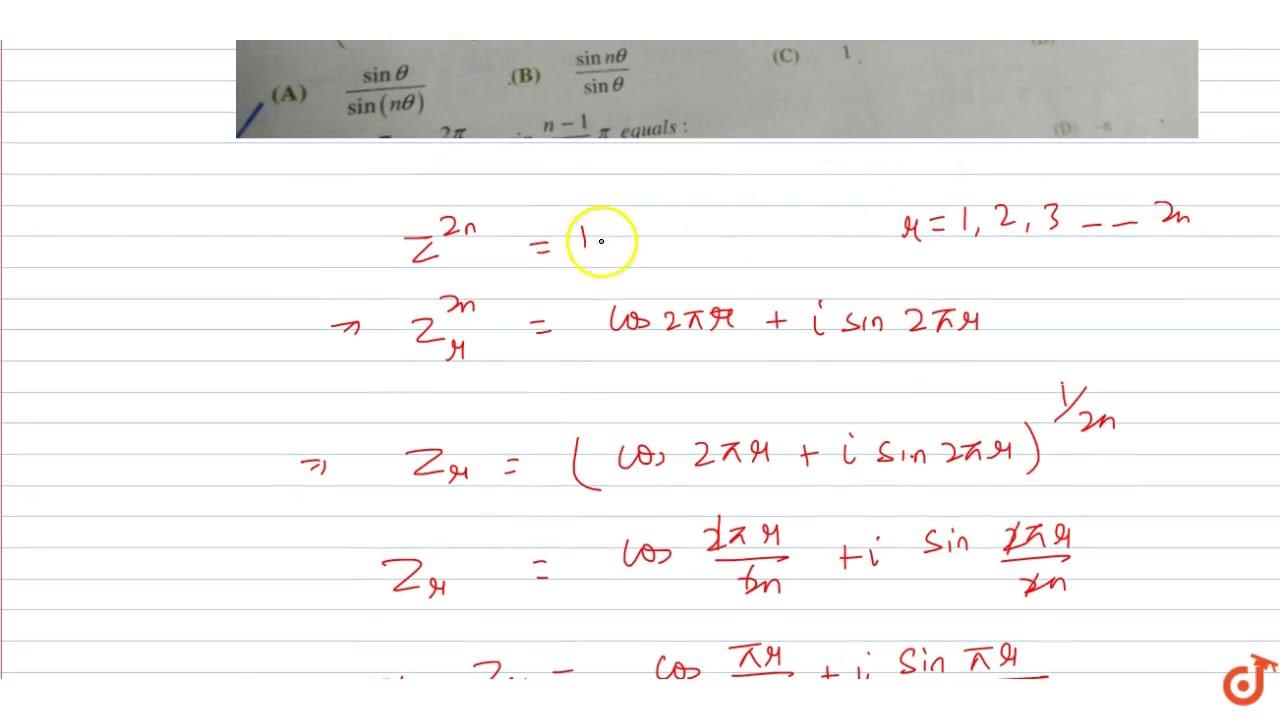 (A) sin θ / sin(nθ) (B) sin nθ / sin θ (C) 1
2π n − 1 / π equals : (D) −n
z^2n = 1 r = 1, 2, 3 -- 2n
⇒ z_r^2n = cos 2πr + i sin 2πr
⇒ z_r = (cos 2πr + i sin 2πr)^1/2n
z_r = cos 2πr / 2n + i sin 2πr / 2n
cos πr + i sin πr